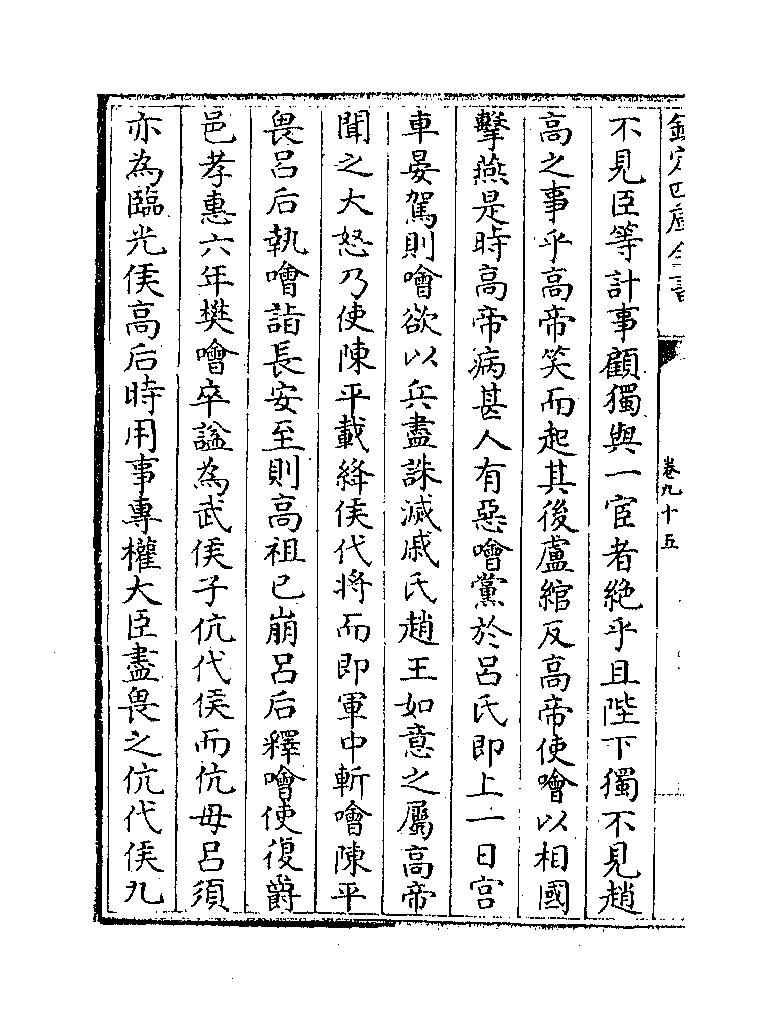 欽定四庫全書
卷九十五
不見臣等計事顧獨與一宦者絶乎且陛下獨不見趙
高之事乎高帝笑而起其後盧綰反高帝使噲以相國
擊燕是時高帝病甚人有惡噲黨於呂氏即上一日宫
車晏駕則噲欲以兵盡誅滅戚氏趙王如意之屬高帝
聞之大怒乃使陳平載絳侯代將而即軍中斬噲陳平
畏呂后執噲詣長安至則高祖已崩呂后釋噲使復爵
邑孝惠六年樊噲卒諡為武侯子伉代侯而伉母呂須
亦為臨光侯高后時用事專權大臣盡畏之伉代侯九